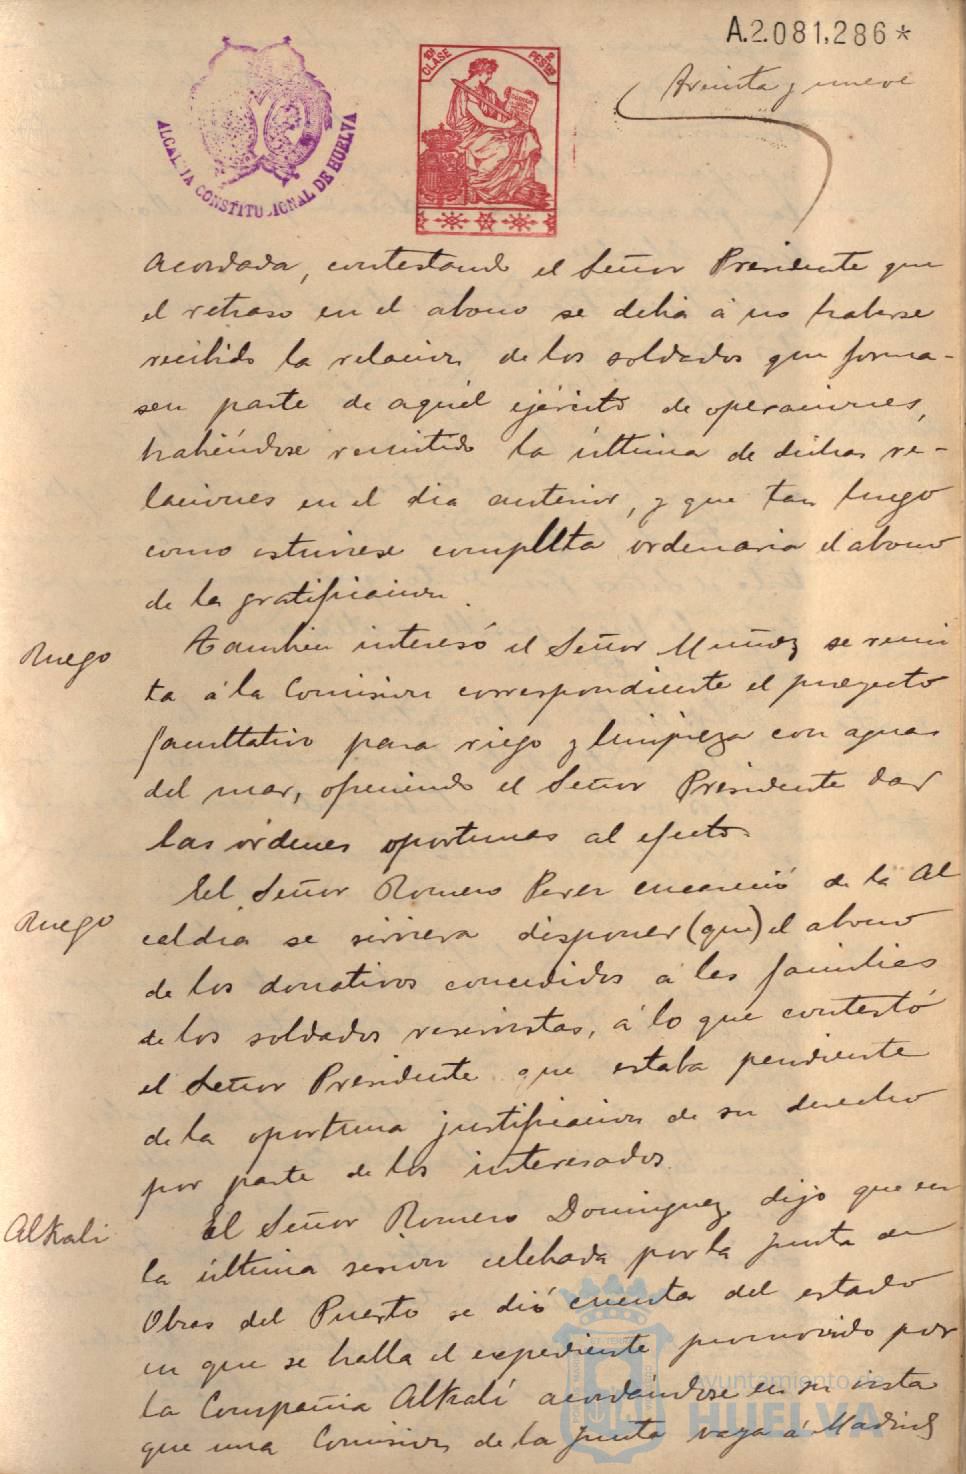 A.2.081,286*
Treinta y nueve
10ª CLASE
2 PESETAS
ALCALDIA CONSTITUCIONAL DE HUELVA
acordada, contestando el Señor Presidente que
el retraso en el abono se debia á no haberse
recibido la relacion de los soldados que forma-
sen parte de aquél ejército de operaciones,
habiéndose remitido la última de dichas re-
laciones en el dia anterior, y que tan luego
como estuviese completa ordenaria el abono
de la gratificacion.
Ruego
Tambien interesó el Señor Muñoz se remi
ta á la Comision correspondiente el proyecto
facultativo para riego y limpieza con aguas
del mar, ofreciendo el Señor Presidente dar
las órdenes oportunas al efecto.
Ruego
El Señor Romero Perez encareció de la Al
caldia se sirviera disponer (que) el abono
de los donativos concedidos á las familias
de los soldados reservistas, á lo que contestó
el Señor Presidente que estaba pendiente
de la oportuna justificacion de su derecho
por parte de los interesados.
Alkali
El Señor Romero Dominguez dijo que en
la última sesion celebrada por la Junta de
Obras del Puerto se dió cuenta del estado
en que se halla el expediente promovido por
la Compañia Alkali acordándose en su vista
que una Comision de la Junta vaya á Madrid
Ayuntamiento de
HUELVA